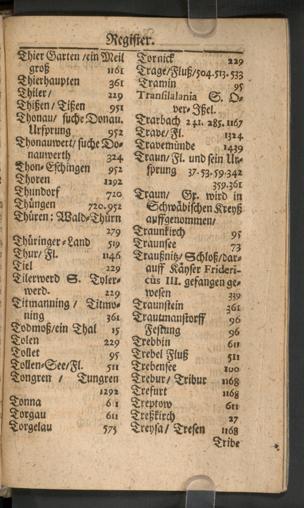 Register.
Thier Garten / ein Meil
groß 1161
Thierhaupten 361
Thiler / 229
Thißen / Tißen 951
Thonau / suche Donau.
Ursprung 952
Thonauwert / suche Do-
nauwerth 324
Thon-Eschingen 952
Thoren 1292
Thundorf 720
Thüngen 720.952
Thüren: Wald-Thürn
279
Thüringer-Land 519
Thur / Fl. 1146
Tiel 229
Tilerwerd S. Tyler-
werd. 229
Titmanning / Titmo-
ning 361
Todmoß / ein Thal 15
Tolen 229
Tollet 95
Tollen-See / Fl. 511
Tongren / Tungren
1292
Tonna 6 1
Torgau 611
Torgelau 575
Tornick 229
Trage / Fluß / 504.513.533
Tramin 95
Transilalania S. O-
ver-Ißel.
Trarbach 241.285.1167
Trave / Fl. 1324
Travemünde 1439
Traun / Fl. und sein Ur-
sprung 37.53.59.342
359.361
Traun / Gr. wird in
Schwäbischen Kreyß
auffgenommen /
Traunkirch 95
Traunsee 73
Traußnitz / Schloß / dar-
auff Käyser Frideri-
cus III. gefangen ge-
wesen 339
Traunstein 361
Trautmanstorff 96
Festung 96
Trebbin 611
Trebel Fluß 511
Trebensee 100
Trebur / Tribur 1168
Trefurt 1168
Treptow 611
Treßkirch 27
Treysa / Tresen 1168
Tribe